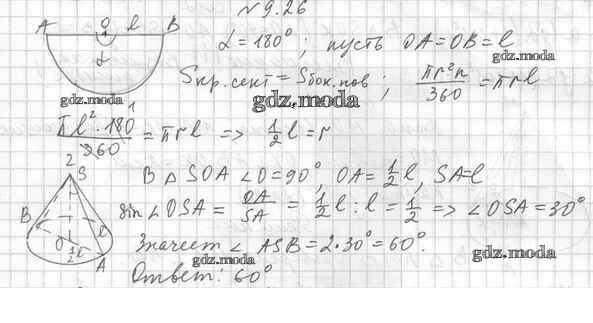 № 9.26
A O l B
α
α = 180° ; пусть OA = OB = l
Sкр.сект = Sбок.пов ; πr²n/360 = πrl
gdz.moda
gdz.moda
πl²·180/360 = πrl => 1/2 l = r
1
2
S
B O 1/2 l A l
В △ SOA ∠O = 90°, OA = 1/2 l, SA = l
sin ∠OSA = OA/SA = 1/2 l : l = 1/2 => ∠OSA = 30°
Значит ∠ ASB = 2·30° = 60°.
gdz.moda
gdz.moda
Ответ: 60°